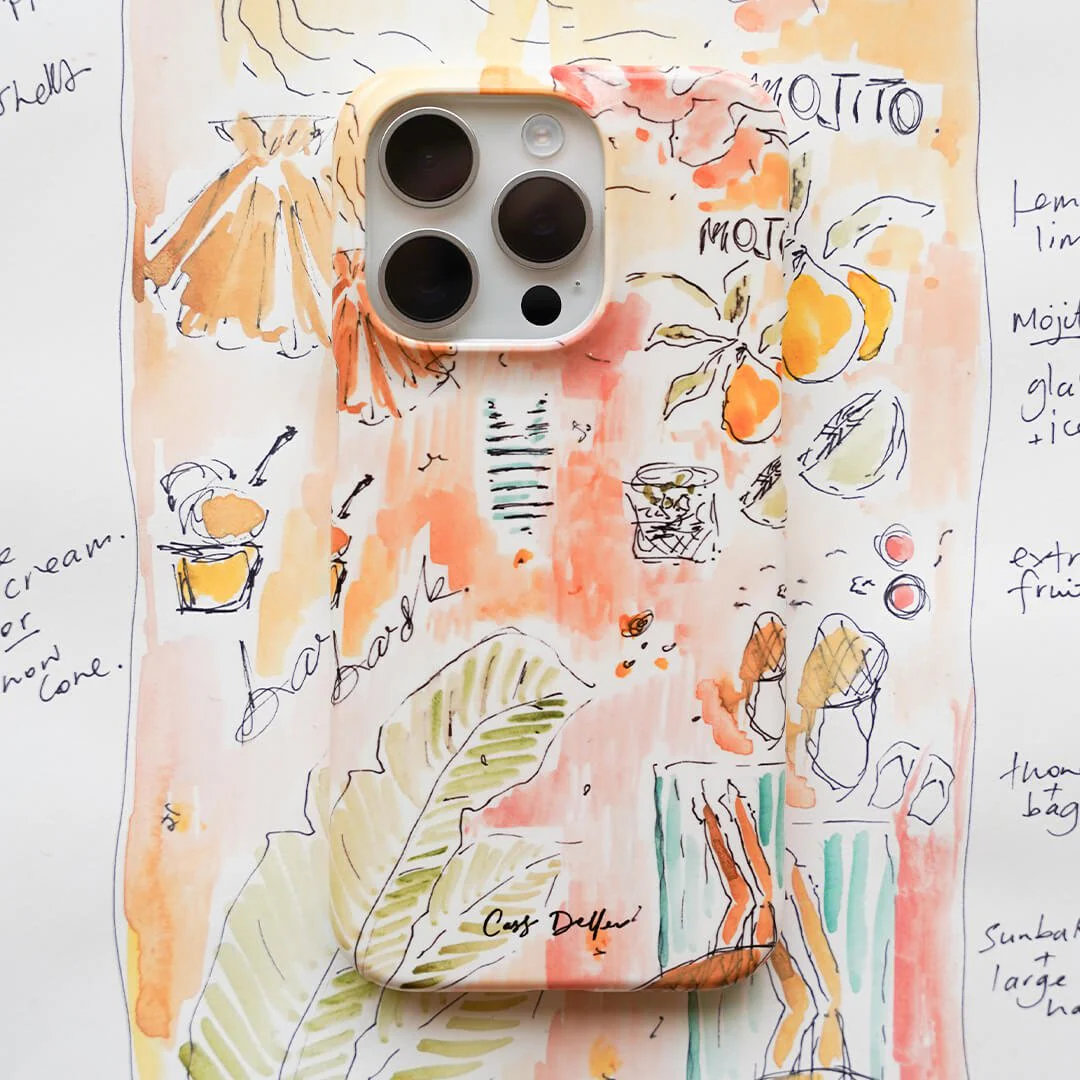 shells
MOJITO
MOJI
Lem
lim
Mojit
gla
+ice
cream.
or
now
cone.
extr
frui
bar
bask.
thon
+
bag
Cass Deller
Sunba
+
large
ha